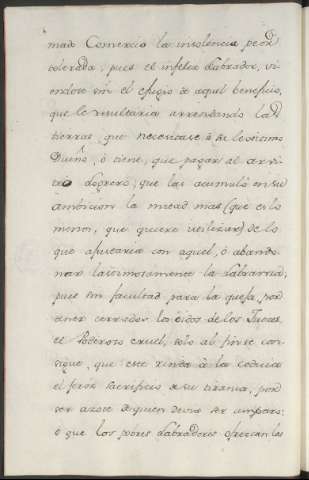 mado Comercio la insolencia peor
tolerada, pues el infeliz Labrador, vi-
endose sin el efugio de aquel beneficio,
que le resultaria arrendando las
tierras, que necesitase à su lexitimo
Dueño, ò tiene, que pagar al arvi-
trio Logrero, que las acumuló en su
ambicion la mitad mas (que es lo
menos, que quiere utilizar) de lo
que ajustaria con aquel, ò abando-
nar lastimosamente la Labranza,
pues sin facultad para la quexa, por
tener cerrados los oidos de los Jueces
el Poderoso cruel, solo al pobre con-
sigue, que este rinda à la codicia
el feroz sacrificio de su tirania, por
ser azote de quien devia ser amparo:
ò que los pobres Labradores ofrezcan los